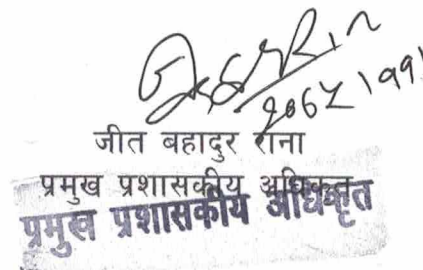 जीत बहादुर राना
प्रमुख प्रशासकीय अधिकृत
प्रमुख प्रशासकीय अधिकृत